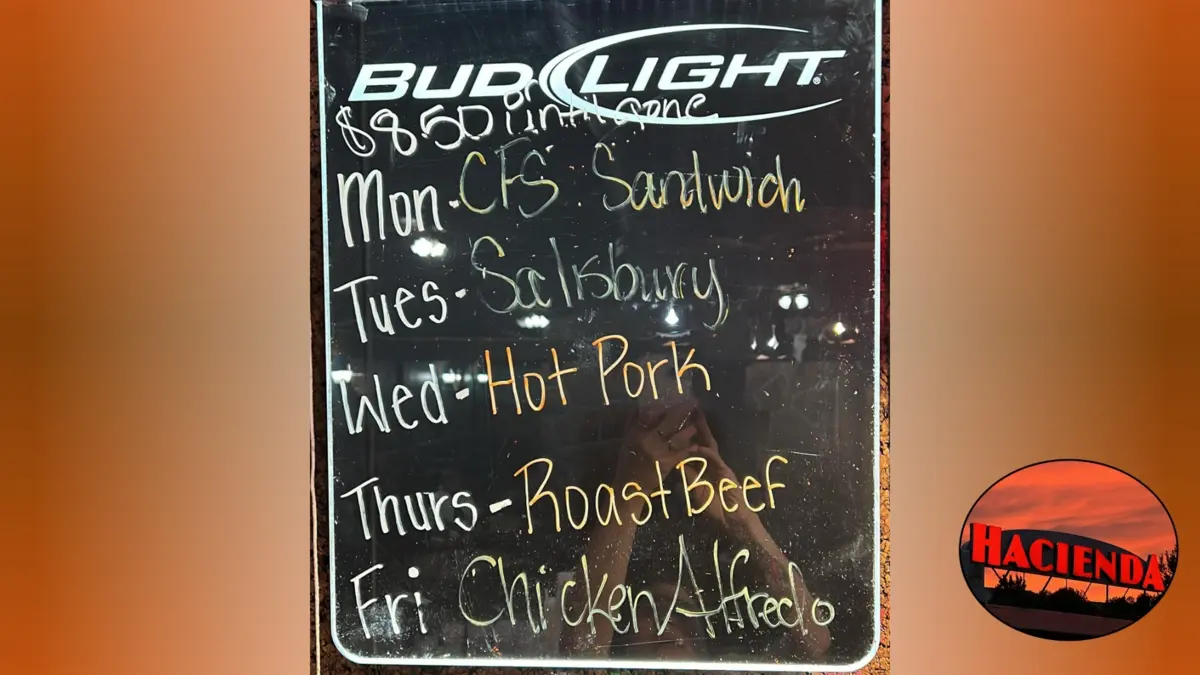 BUD LIGHT
$8.50 until gone
Mon - CFS Sandwich
Tues - Salisbury
Wed - Hot Pork
Thurs - Roast Beef
Fri Chicken Alfredo
HACIENDA